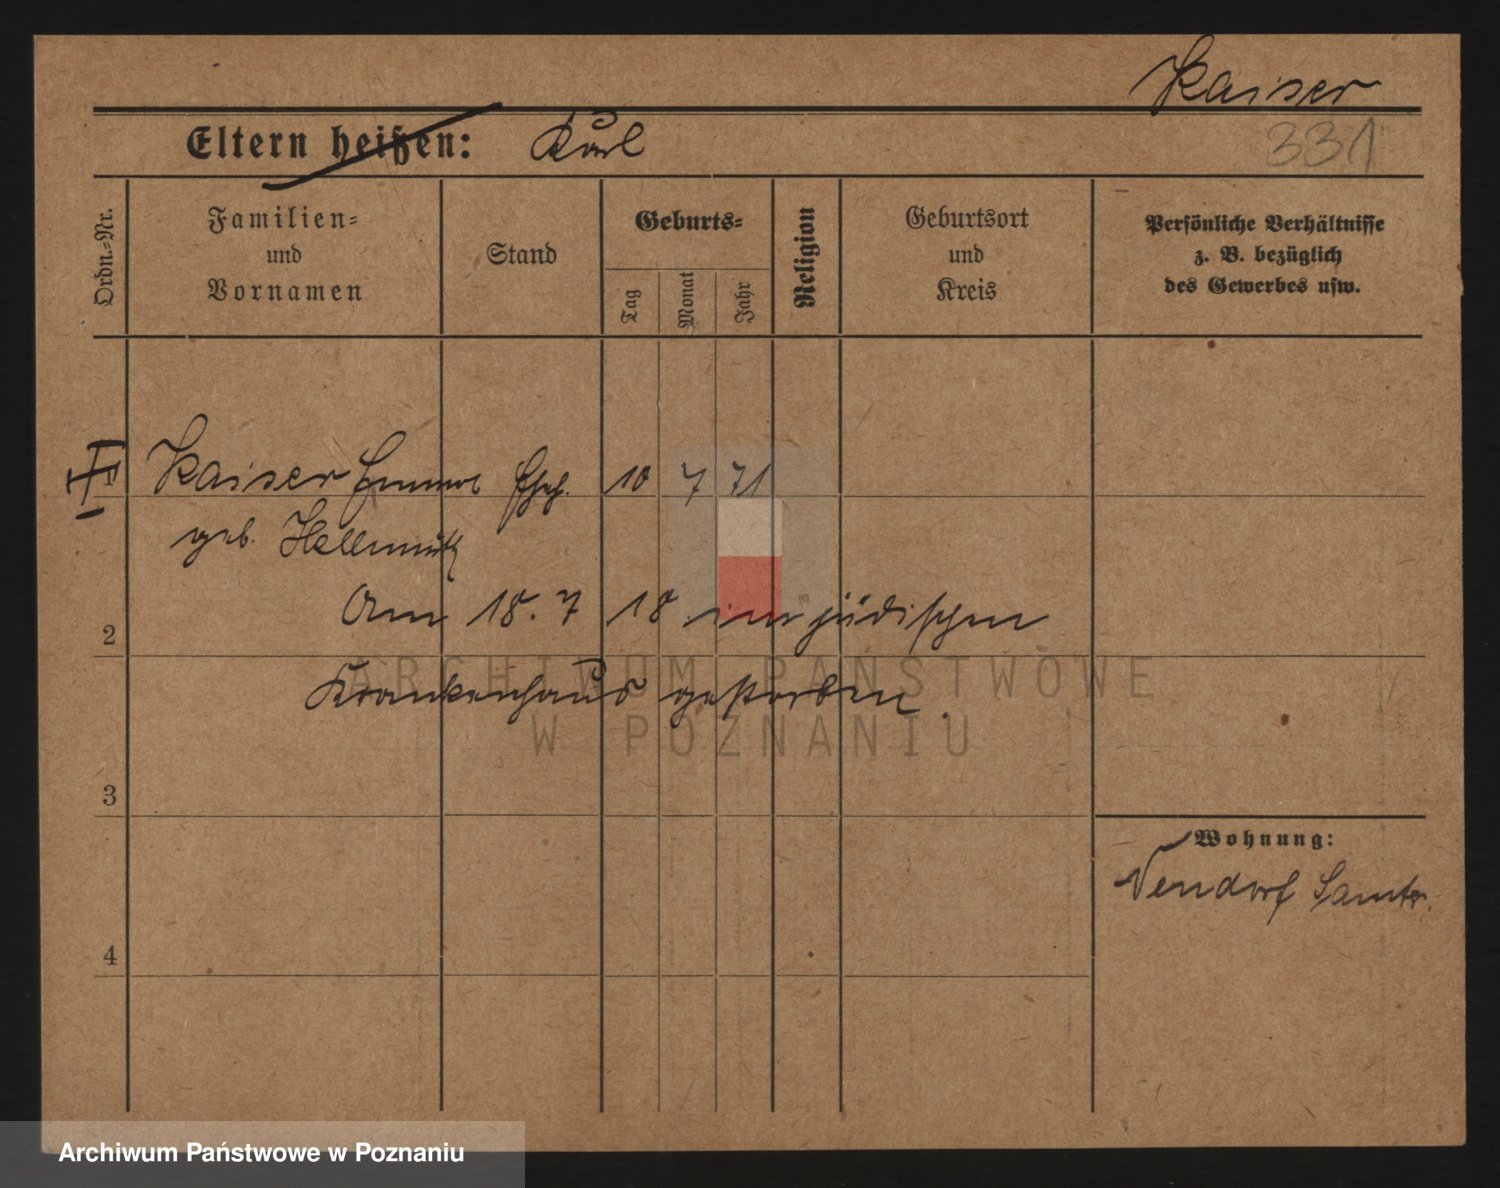 Kaiser
Eltern heißen: Karl
331
Ordn.-Nr.
Familien- und Vornamen
Stand
Geburts-
Tag
Monat
Jahr
Religion
Geburtsort und Kreis
Persönliche Verhältnisse
z. B. bezüglich
des Gewerbes usw.
Kaiser Emma Ehefr. 10 7 71
geb. Hellmuth
Am 18. 7 18 im jüdischen
2
Krankenhaus gestorben.
ARCHIWUM PAŃSTWOWE
W POZNANIU
3
Wohnung:
Neudorf Samter.
4
Archiwum Państwowe w Poznaniu